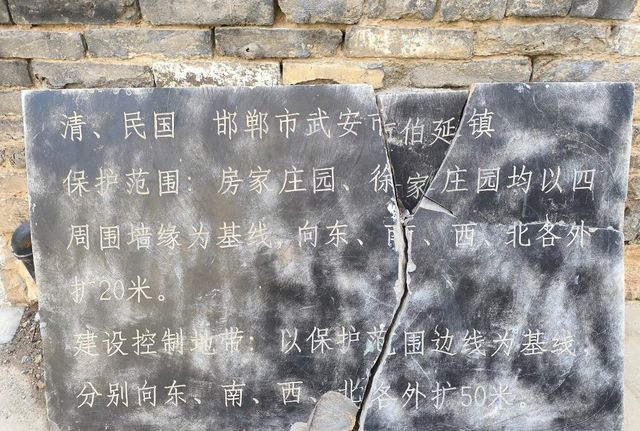 清、民国 邯郸市武安市伯延镇
保护范围：房家庄园、徐家庄园均以四
周围墙缘为基线，向东、南、西、北各外
扩20米。
建设控制地带：以保护范围边线为基线，
分别向东、南、西、北各外扩50米。